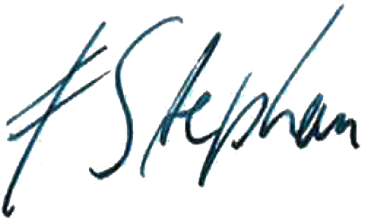 F Stephan